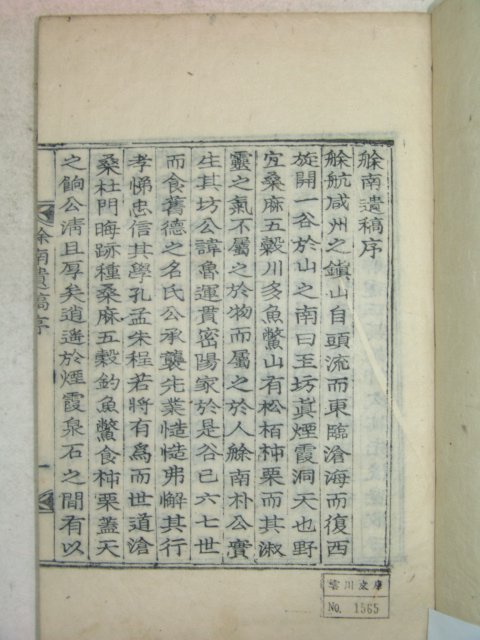 艅南遺稿序
艅航咸州之鎭山自頭流而東臨滄海而復西
旋開一谷於山之南曰玉坊眞煙霞洞天也野
宜桑麻五穀川多魚鱉山有松栢柿栗而其淑
靈之氣不屬之於物而屬之於人艅南朴公實
生其坊公諱魯運貫密陽家於是谷已六七世
而食舊德之名氏公承襲先業慥慥弗懈其行
孝悌忠信其學孔孟朱程若將有爲而世道滄
桑杜門晦跡種桑麻五穀釣魚鱉食柿栗蓋天
之餉公淸且厚矣逍遙於煙霞泉石之間有以
艅南遺稿序
一
雲川文庫
No. 1565